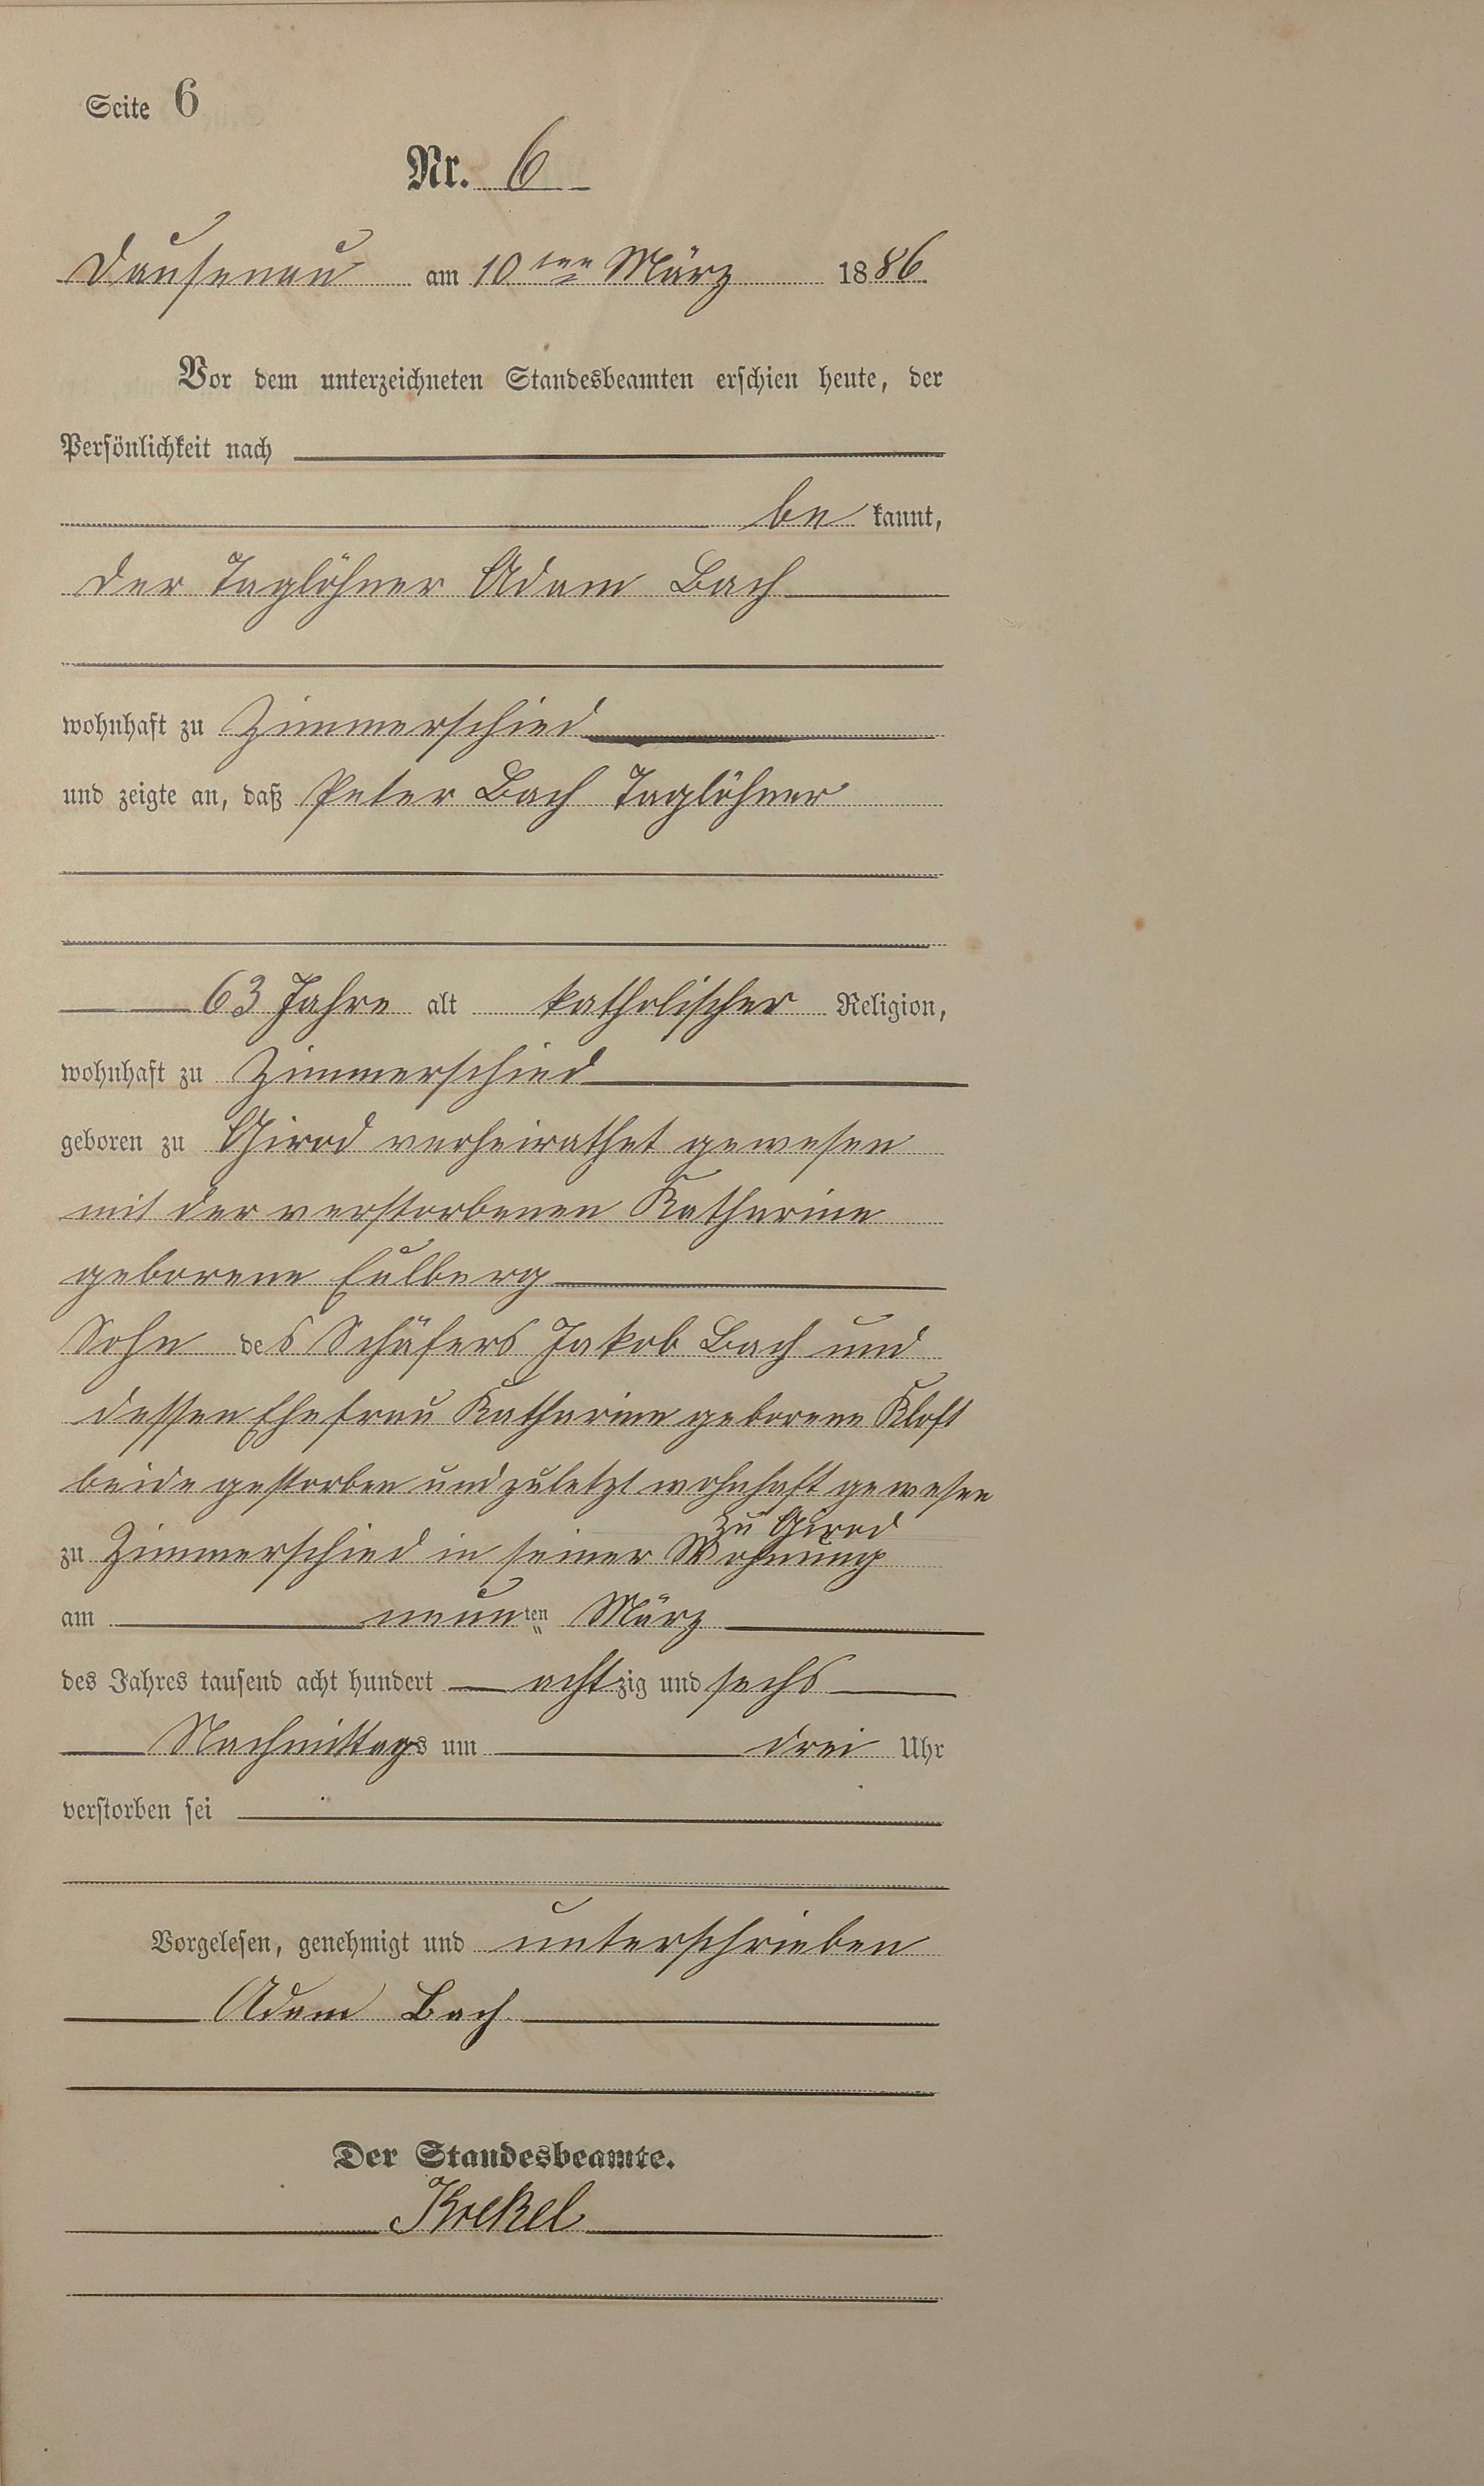 Seite 6
Nr. 6
Dausenau am 10ten März 1886
Vor dem unterzeichneten Standesbeamten erschien heute, der
Persönlichkeit nach
be kannt,
der Taglöhner Adam Bach
wohnhaft zu Zimmerschied
und zeigte an, daß Peter Bach Taglöhner
63 Jahre alt katholischer Religion,
wohnhaft zu Zimmerschied
geboren zu Girod verheirathet gewesen
mit der verstorbenen Katharine
geborene Eulberg
Sohn des Schäfers Jakob Bach und
dessen Ehefrau Katharine geborene Kloft
beide gestorben und zuletzt wohnhaft gewesen
zu Girod
zu Zimmerschied in seiner Wohnung
am neunten März
des Jahres tausend acht hundert achtzig und sechs
Nachmittags um drei Uhr
verstorben sei
Vorgelesen, genehmigt und unterschrieben
Adam Bach.
Der Standesbeamte.